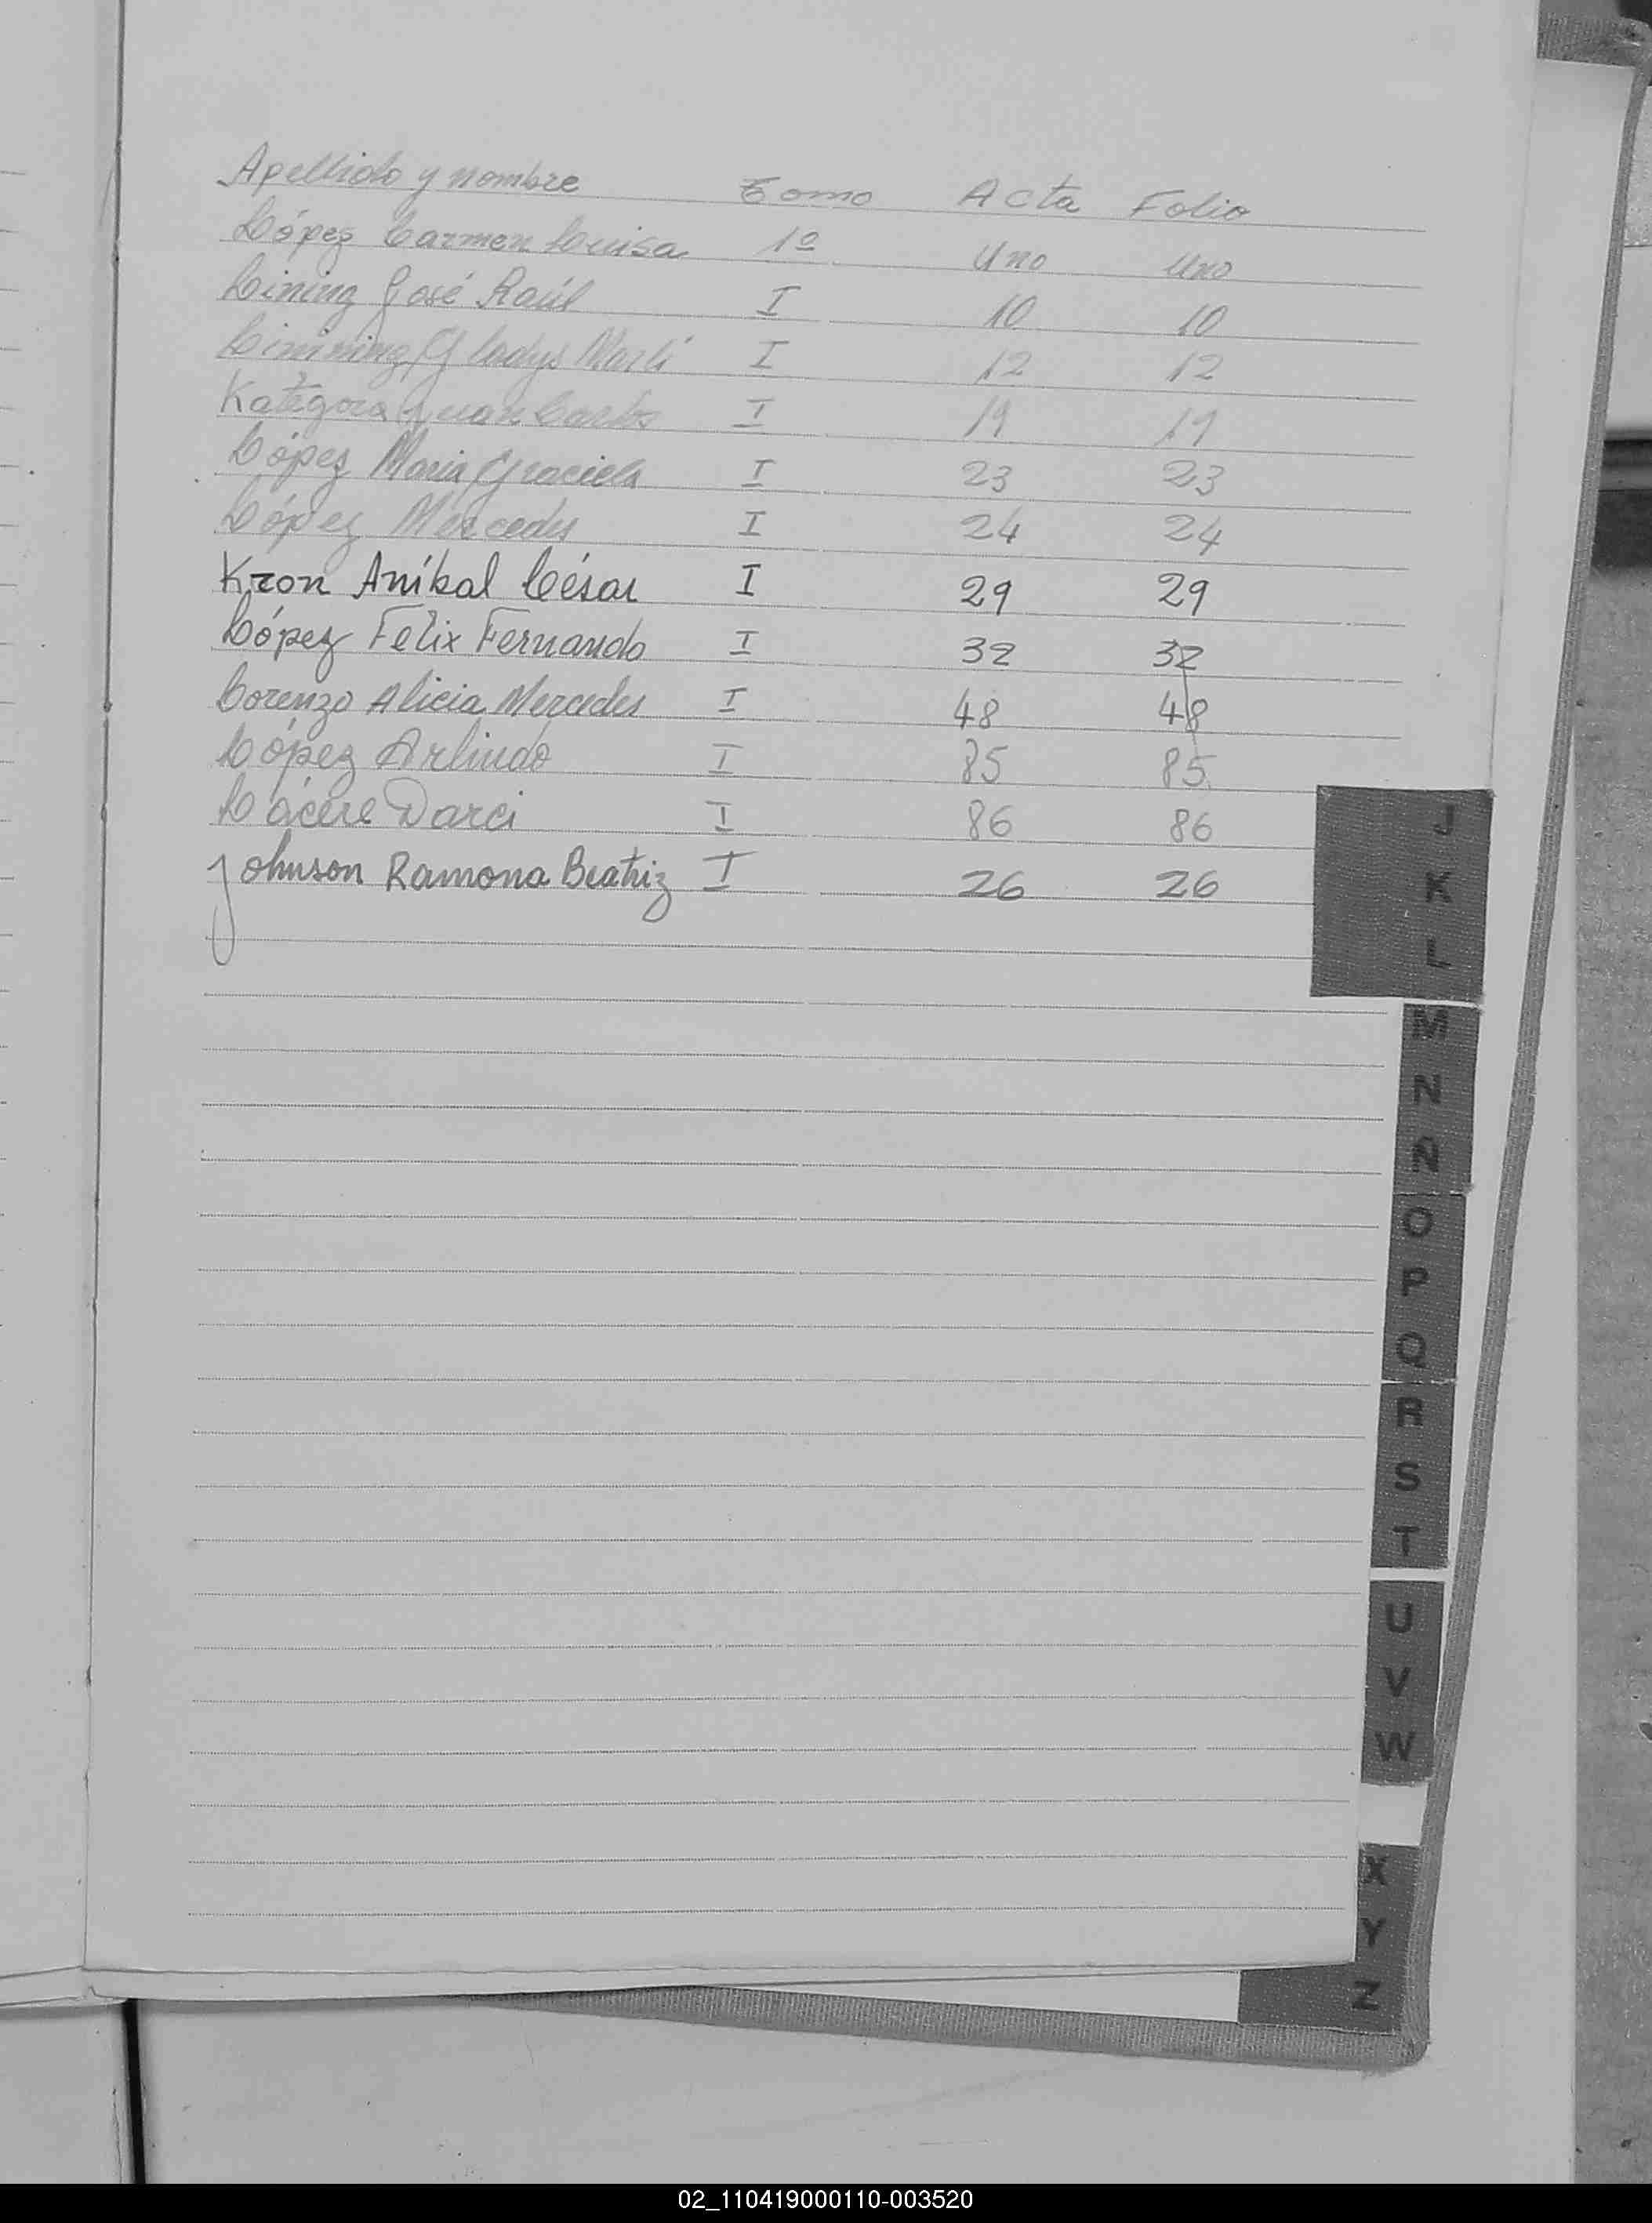 Apellido y nombre Tomo Acta Folio
López Carmen Luisa 1º Uno Uno
Lining José Raúl I 10 10
Linining Gladys Marlí I 12 12
Kategora Juan Carlos I 19 19
López Maria Graciela I 23 23
López Mercedes I 24 24
Kron Aníbal César I 29 29
López Felix Fernando I 32 32
Lorenzo Alicia Mercedes I 48 48
López Arlindo I 85 85
Lácere Darci I 86 86
Johnson Ramona Beatriz I 26 26
J
K
L
M
N
Ñ
O
P
Q
R
S
T
U
V
W
X
Y
Z
02_110419000110-003520